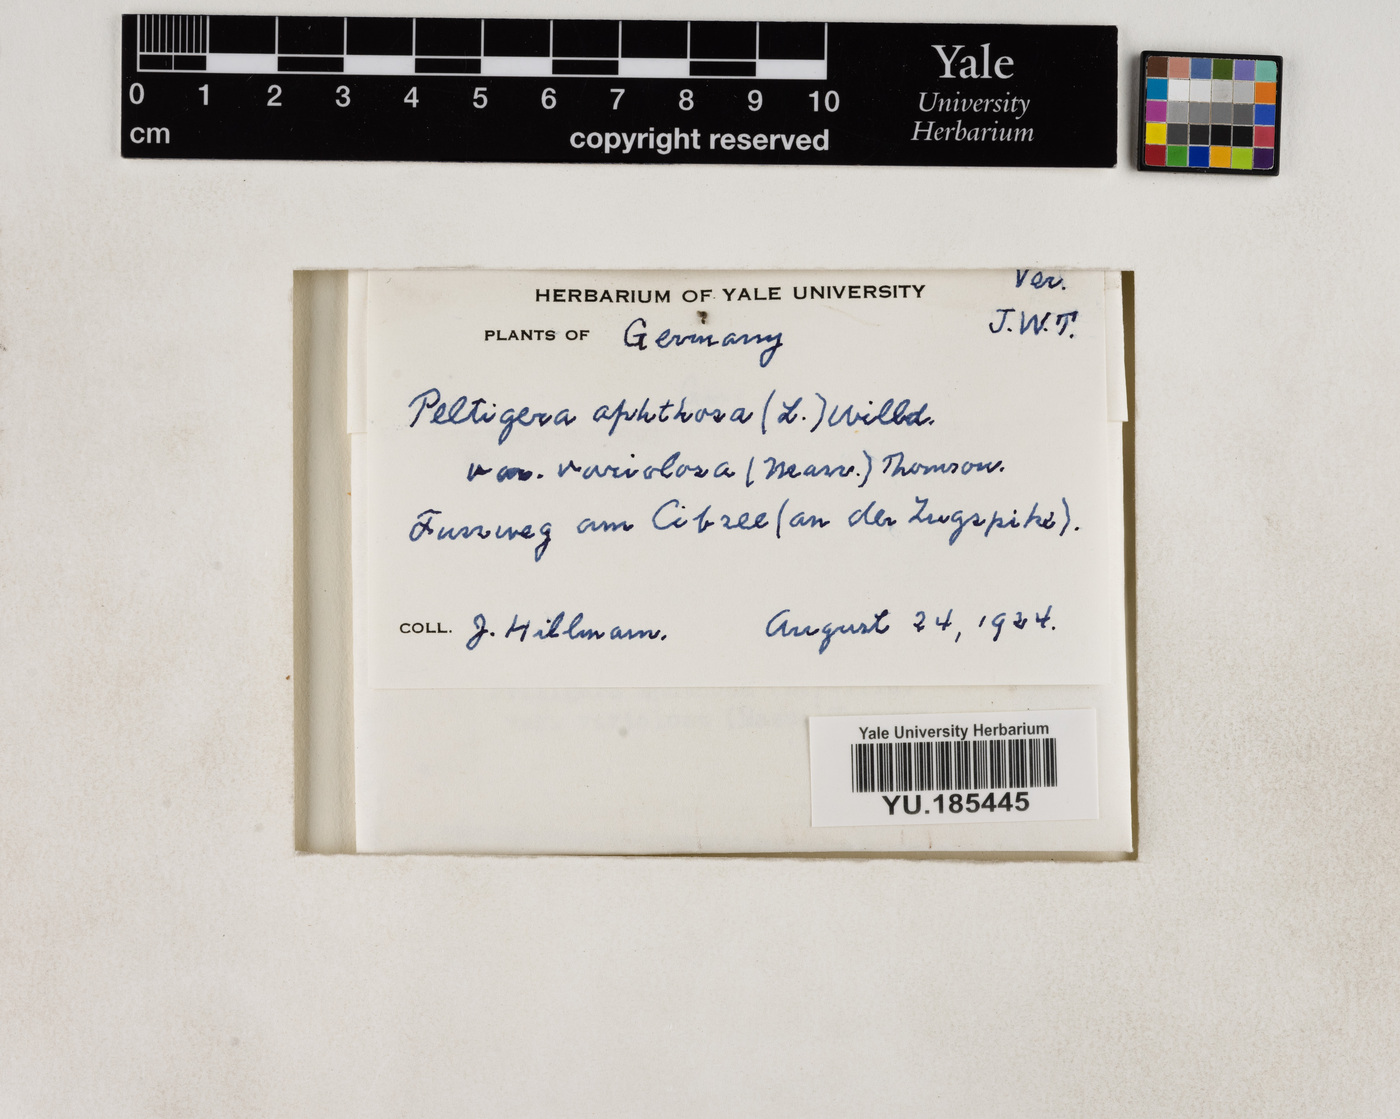 0 1 2 3 4 5 6 7 8 9 10
cm
copyright reserved
Yale
University
Herbarium
Ver.
J.W.T.
HERBARIUM OF YALE UNIVERSITY
PLANTS OF Germany
Peltigera aphthosa (L.) Willd.
var. variolosa (Mass.) Thomson.
Fussweg am Eibsee (an der Zugspitze).
COLL. J. Hillmann. August 24, 1924.
Yale University Herbarium
YU.185445